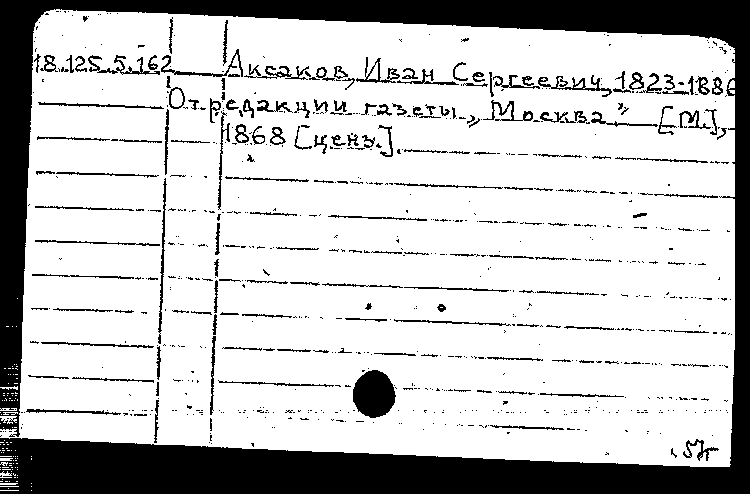 18.125.5.162 Аксаков, Иван Сергеевич, 1823-1886
От редакции газеты „Москва" [М.],
1868 [ценз.].